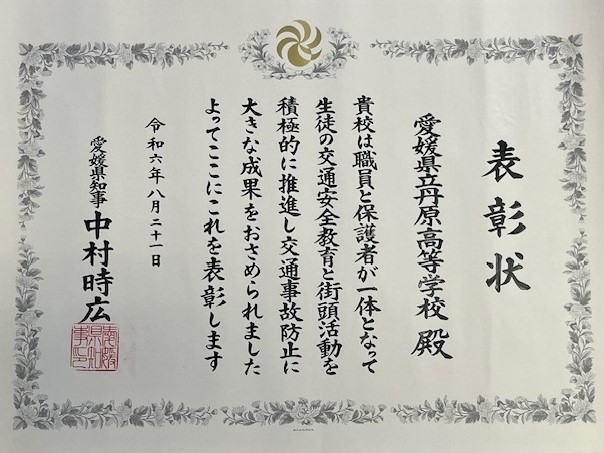 表彰状
愛媛県立丹原高等学校 殿
貴校は職員と保護者が一体となって
生徒の交通安全教育と街頭活動を
積極的に推進し交通事故防止に
大きな成果をおさめられました
よってここにこれを表彰します
令和六年八月二十一日
愛媛県知事 中村時広
愛媛県知事印